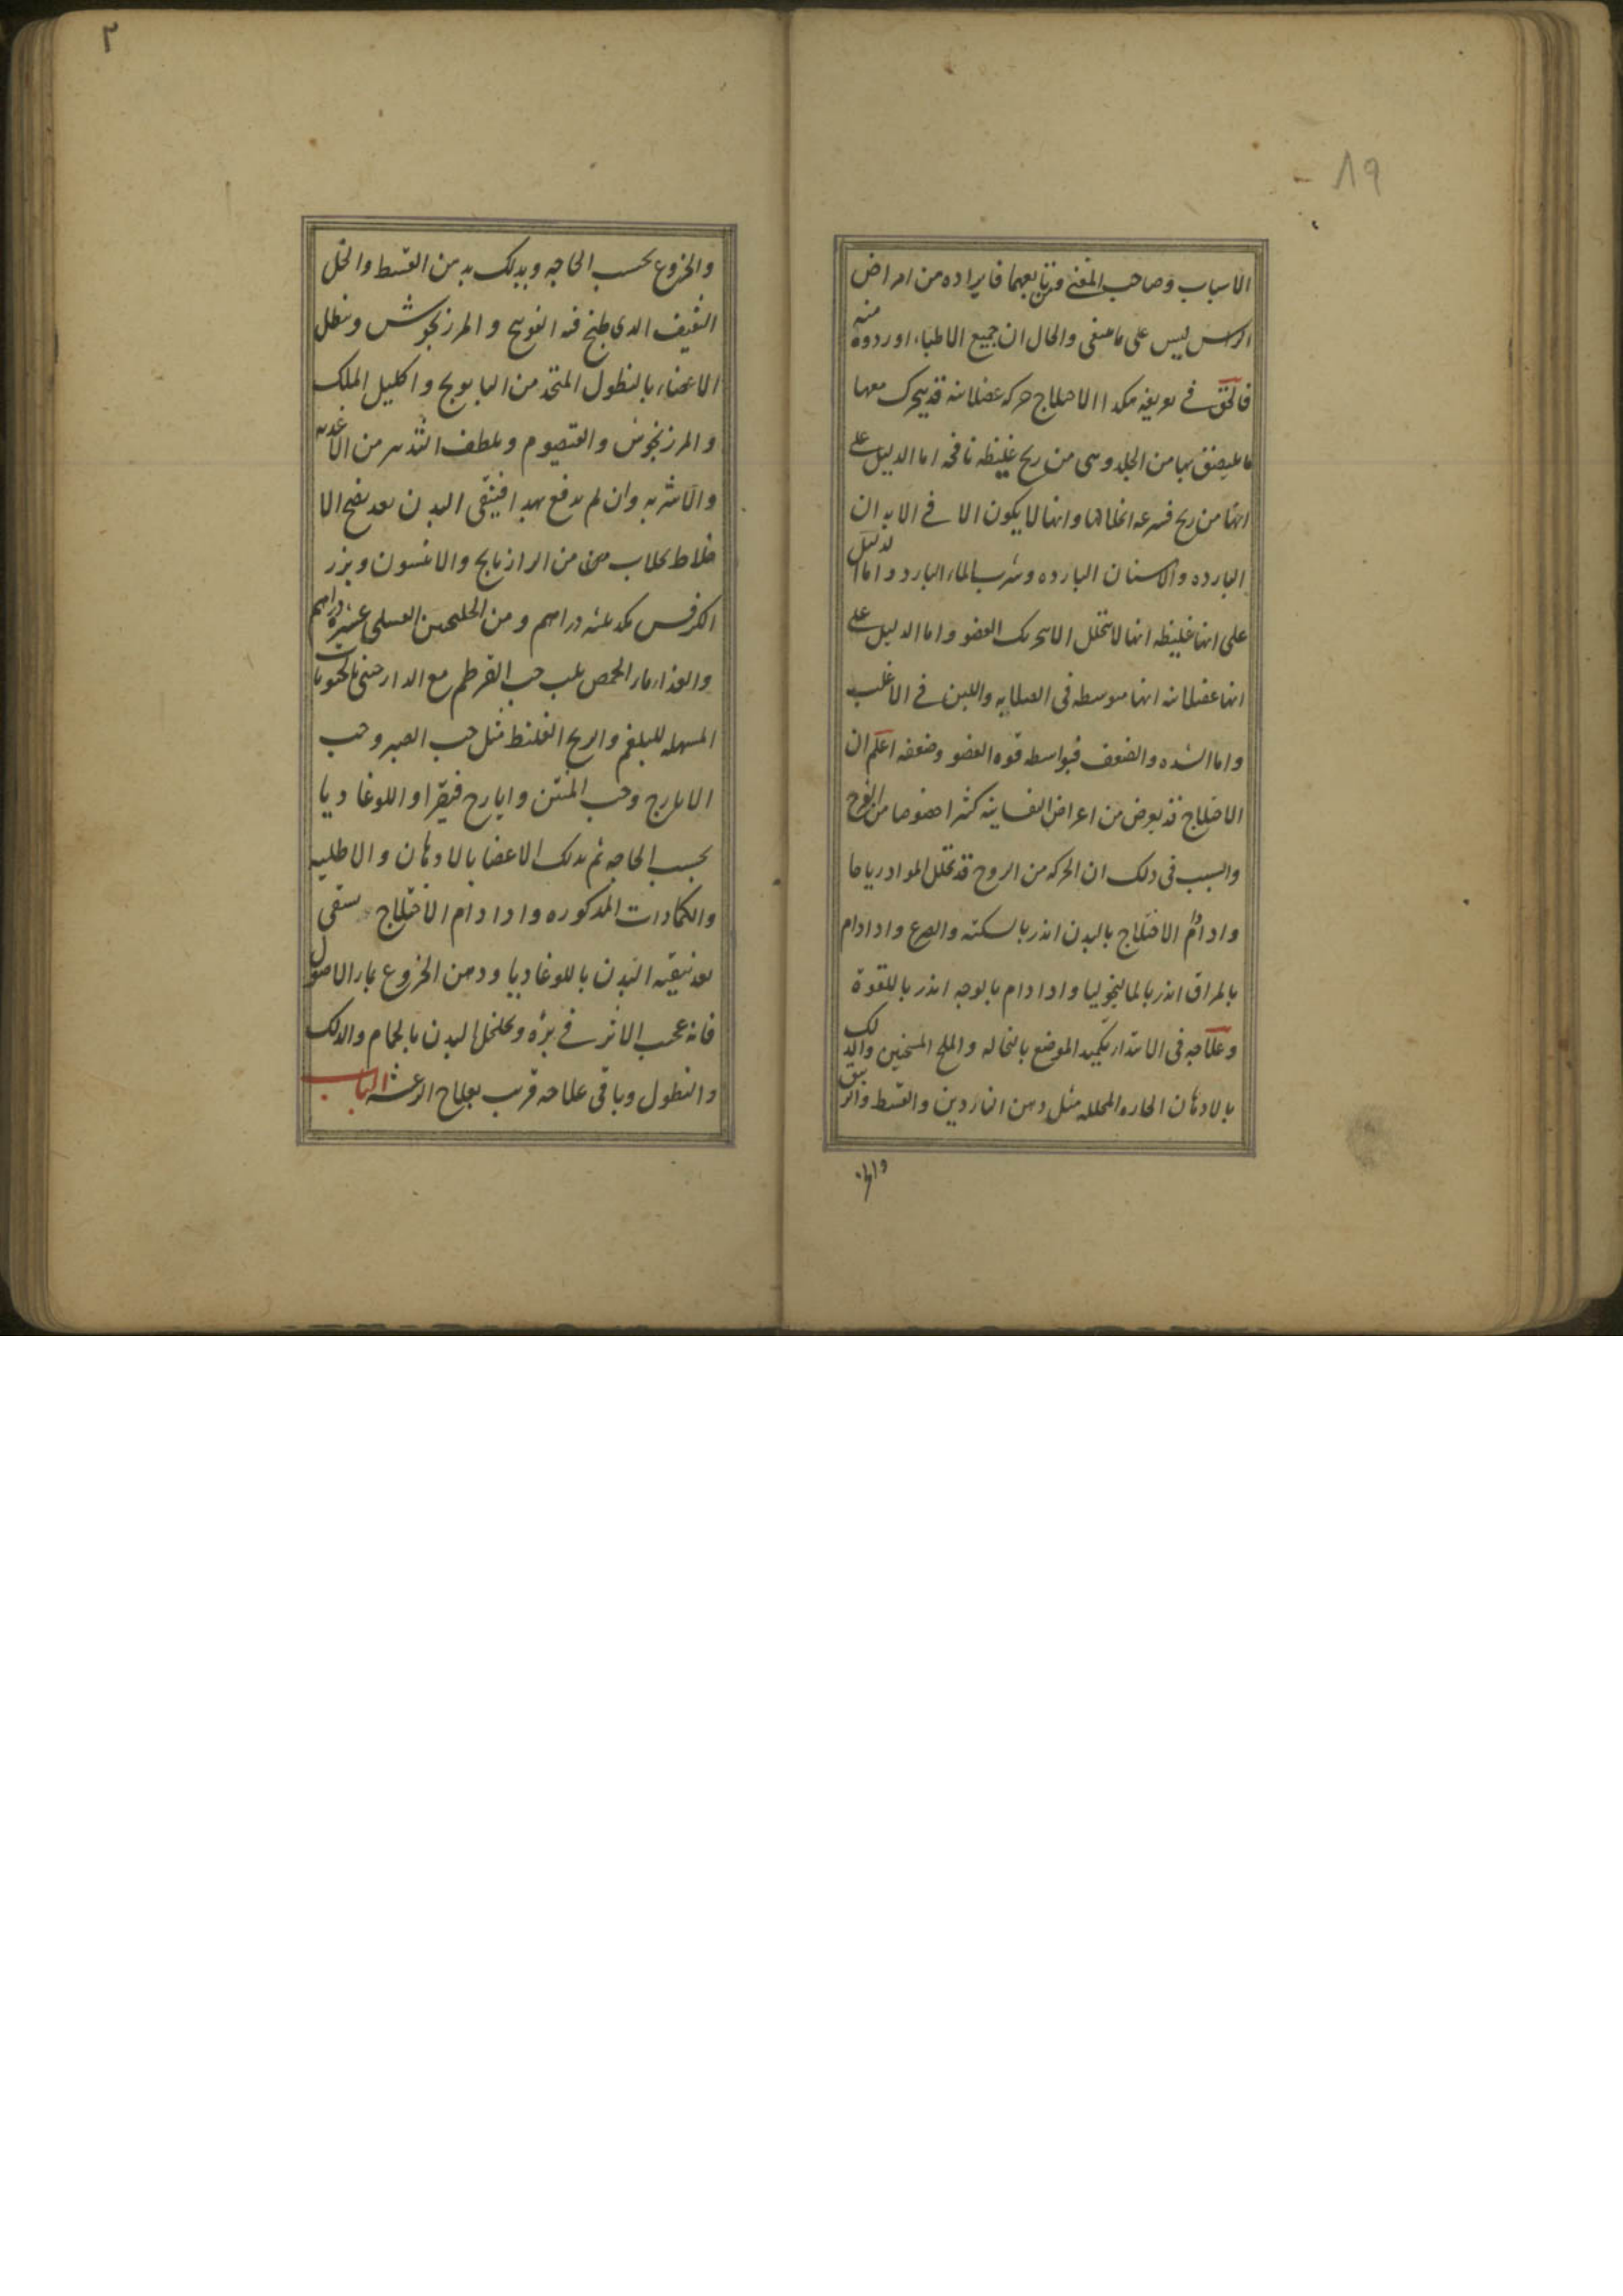 ٨٩
الاسباب وصاحب المغنى ومن تابعهما فايراده من امراض
الراس ليس على ما ينبغى والحال ان جميع الاطباء اوردوه منه
فالحق فى تعريفه هكذا الاختلاج حركه عضلانيه قد يتحرك معها
ما يلتصق بها من الجلد وهى من ريح غليظه نافخه اما الدليل على
انها من ريح فسرعه انحلالها وانها لا يكون الا فى الابدان
البارده والاسنان البارده وشرب الماء البارد واما الدليل
على انها غليظه انها لا تتحلل الا بتحريك العضو واما الدليل على
انها عضلانيه انها متوسطه فى الصلابه واللين فى الاغلب
واما الشده والضعف فبواسطه قوه العضو وضعفه اعلم ان
الاختلاج قد يعرض من اعراض النفسانيه كثيرا خصوصا من الفرح
والسبب فى ذلك ان الحركه من الروح قد تحلل المواد رياحا
واذا دام الاختلاج بالبدن انذر بالسكته والصرع واذا دام
بالمراق انذر بالماليخوليا واذا دام بالوجه انذر باللقوة
وعلاجه فى الابتداء تكميد الموضع بالنخاله والملح المسخنين والدلك
بالادهان الحاره المحلله مثل دهن الناردين والقسط والزنبق
٣
والخروع بحسب الحاجه ويدلك بدهن القسط والخل
الثقيف الذى طبخ فيه الفوتنج والمرزنجوش وينطل
الاعضاء بالنطول المتخذ من البابونج واكليل الملك
والمرزنجوش والقيصوم ويلطف التدبير من الاغذيه
والاشربه وان لم يدفع بهذا فينقى البدن بعد نضج الا
خلاط بجلاب من الرازيانج والانيسون وبزر
الكرفس ثلثه دراهم ومن الجلنجبين العسلى عشره دراهم
والغذاء ماء الحمص بلب حب القرطم مع الدارچينى بالحبوبات
المسهله للبلغم والريح الغليظ مثل حب الصبر وحب
الايارج وحب المنتن وايارج فيقرا واللوغاديا
بحسب الحاجه ثم يدلك الاعضا بالادهان والاطليه
والكمادات المذكوره واذا دام الاختلاج يسقى
بعد تنقيه البدن باللوغاديا ودهن الخروع بماء الاصول
فانه عجيب الاثر فى برؤه ويخلخل البدن بالحمام والدلك
والنطول وباقى علاجه قريب بعلاج الرعشه الباب